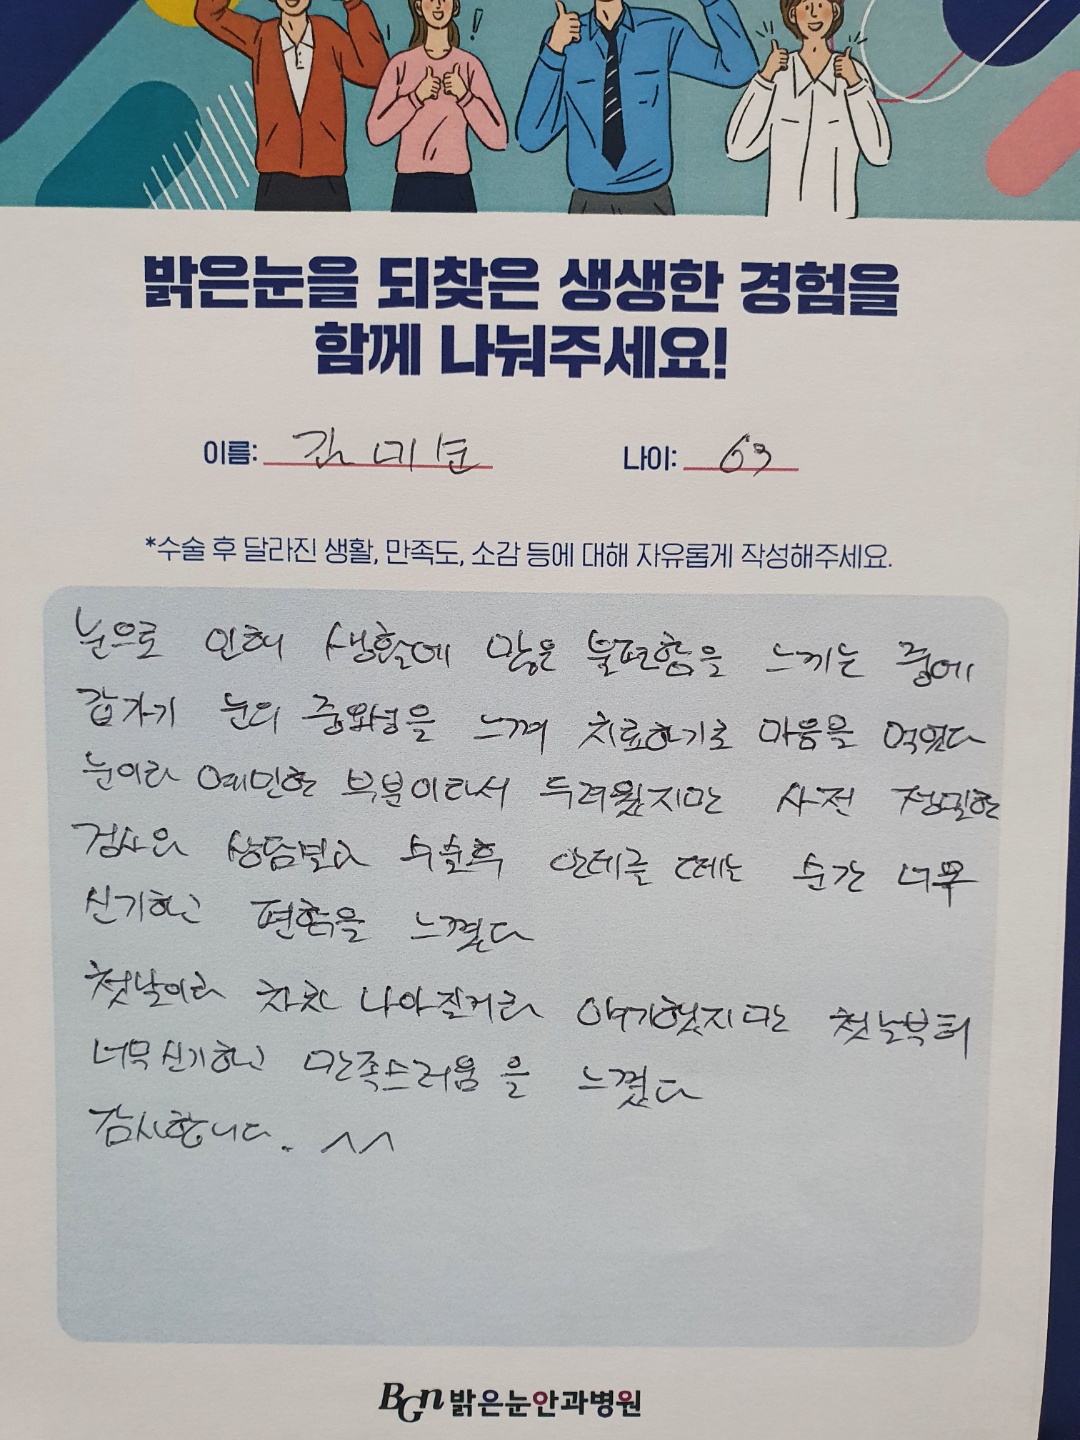 밝은눈을 되찾은 생생한 경험을
함께 나눠주세요!
이름: 나이: 63
*수술 후 달라진 생활, 만족도, 소감 등에 대해 자유롭게 작성해주세요.
눈으로 인해 생활에 많은 불편함을 느끼는 중에
갑자기 눈의 중요성을 느껴 치료하기로 마음을 먹었다
눈이라 예민한 부분이라서 두려웠지만 사전 정밀한
검사와 상담받고 수술후 안대를 떼는 순간 너무
신기하고 편함을 느꼈다
첫날이라 차차 나아질거라 얘기했지만 첫날부터
너무 신기하고 만족스러움을 느꼈다
감사합니다. ^^
BGN 밝은눈안과병원